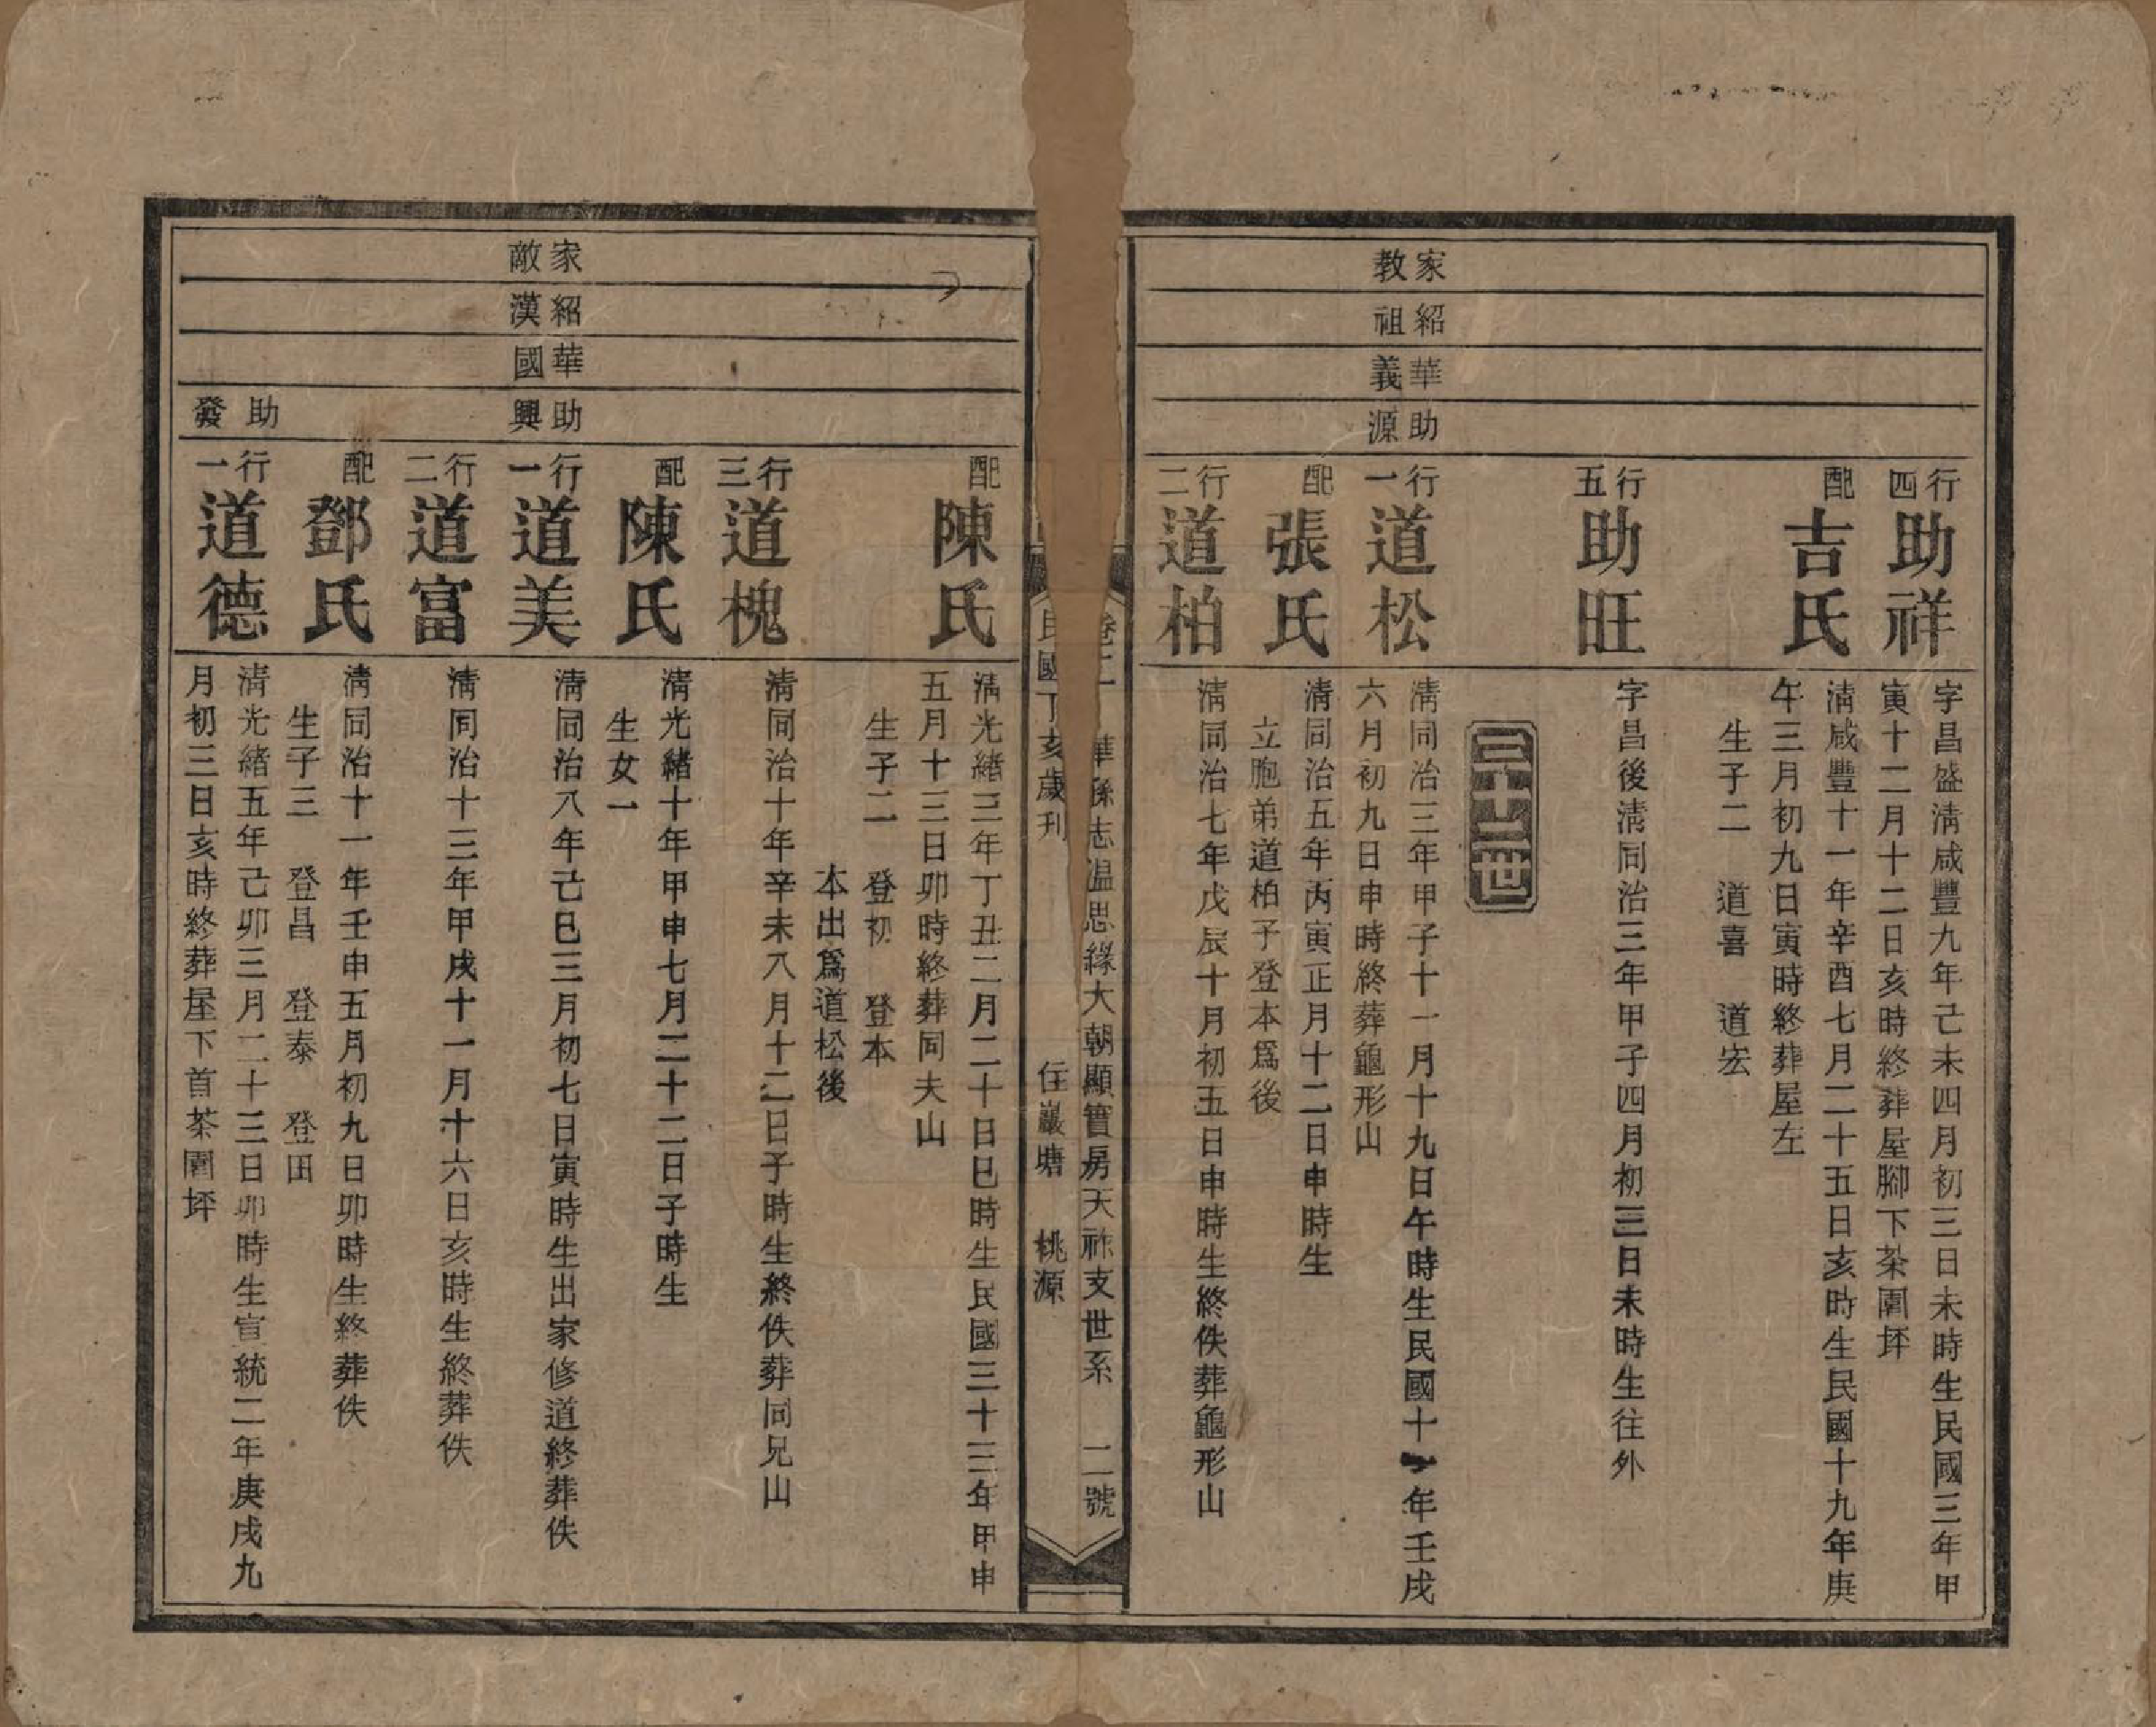 家教
紹祖
華義
助源
行四
助祥
字昌盛淸咸豐九年己未四月初三日未時生民國三年甲
寅十二月十二日亥時終葬屋腳下茶園坪
配
吉氏
淸咸豐十一年辛酉七月二十五日亥時生民國十九年庚
午三月初九日寅時終葬屋左
生子二 道喜 道宏
行五
助旺
字昌後淸同治三年甲子四月初三日未時生往外
行一
道松
淸同治三年甲子十一月十九日午時生民國十一年壬戌
六月初九日申時終葬龜形山
配
張氏
淸同治五年丙寅正月十二日申時生
立胞弟道柏子登本爲後
行二
道柏
淸同治七年戊辰十月初五日申時生終佚葬龜形山
卷二 華孫志温思緣大朝顯寶房天祚支世系 二號
民國丁亥歲刋 住巖塘 桃源
家敵
紹漢
華國
助興
助發
配
陳氏
淸光緖三年丁丑二月二十日巳時生民國三十三年甲申
五月十三日卯時終葬同夫山
生子二 登初 登本
本出爲道松後
行三
道槐
淸同治十年辛未八月十二日子時生終佚葬同兄山
配
陳氏
淸光緖十年甲申七月二十二日子時生
生女一
行一
道美
淸同治八年己巳三月初七日寅時生出家修道終葬佚
行二
道富
淸同治十三年甲戌十一月十六日亥時生終葬佚
配
鄧氏
淸同治十一年壬申五月初九日卯時生終葬佚
生子三 登昌 登泰 登田
行一
道德
淸光緖五年己卯三月二十三日卯時生宣統二年庚戌九
月初三日亥時終葬屋下首茶園坪